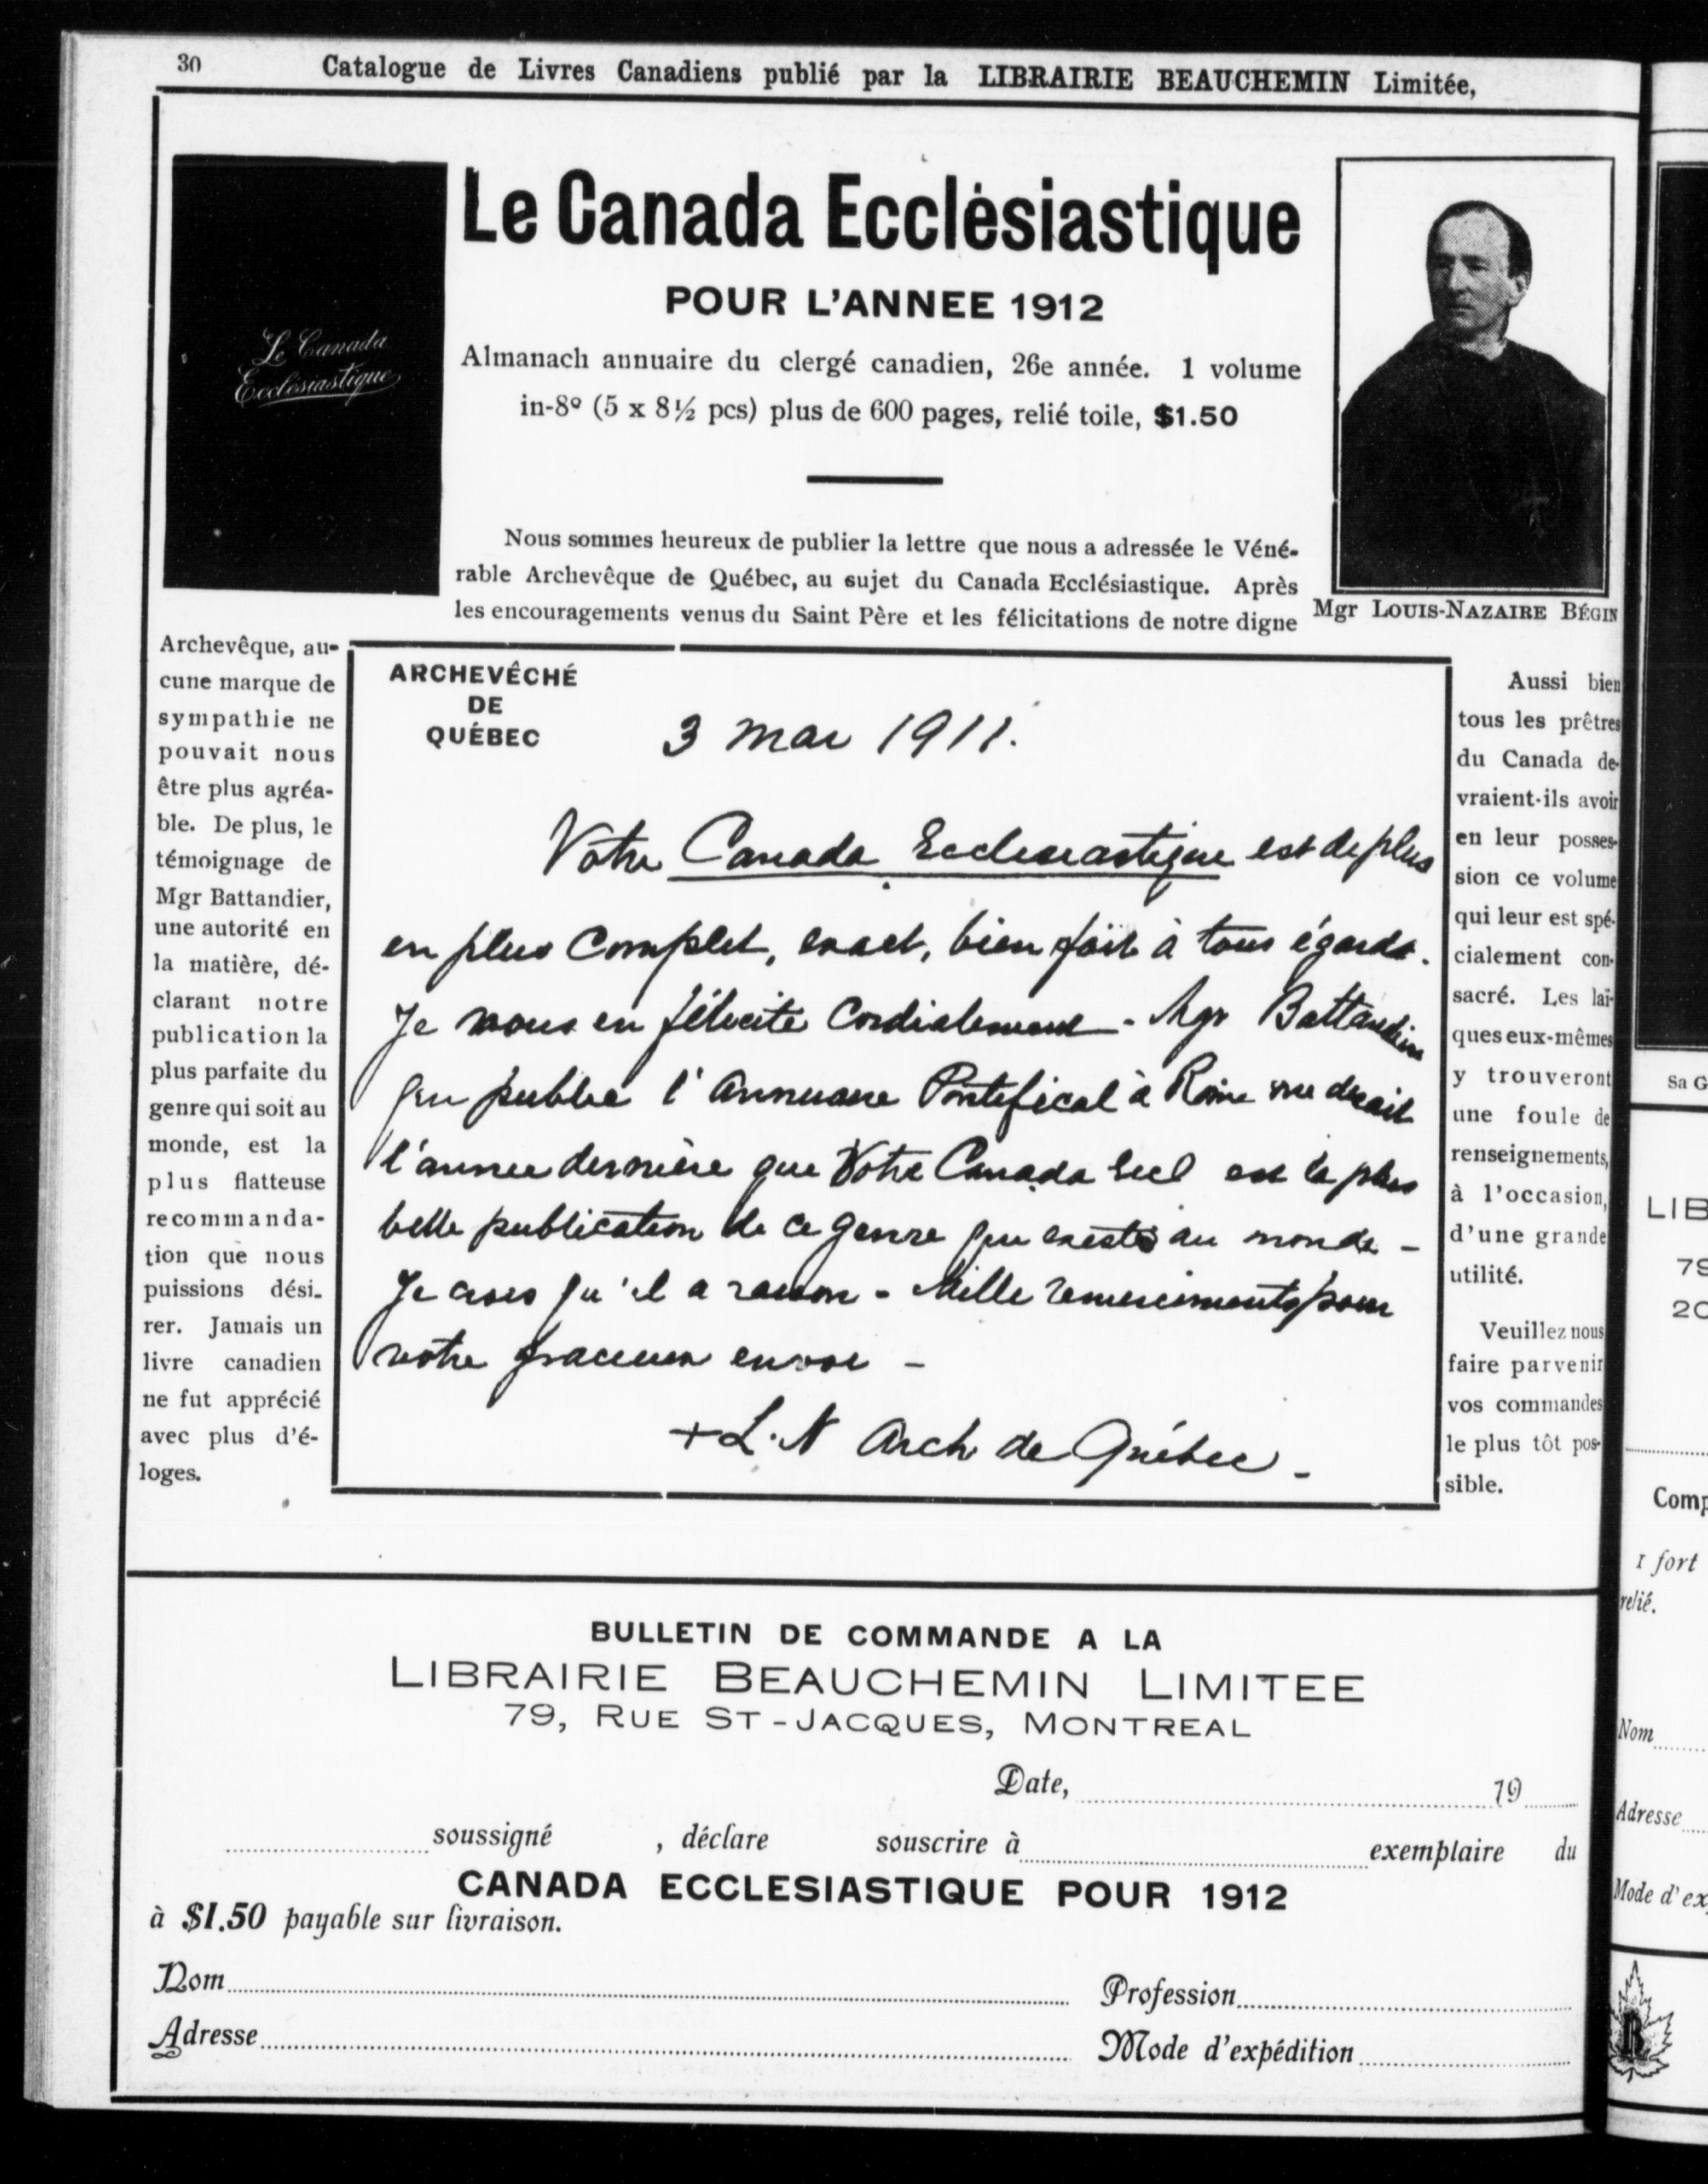 30 Catalogue de Livres Canadiens publié par la LIBRAIRIE BEAUCHEMIN Limitée,
Le Canada
Ecclésiastique
Le Canada Ecclésiastique
POUR L'ANNEE 1912
Almanach annuaire du clergé canadien, 26e année. 1 volume
in-8º (5 x 8½ pcs) plus de 600 pages, relié toile, $1.50
Nous sommes heureux de publier la lettre que nous a adressée le Véné-
rable Archevêque de Québec, au sujet du Canada Ecclésiastique. Après
les encouragements venus du Saint Père et les félicitations de notre digne
Mgr LOUIS-NAZAIRE BÉGIN
Archevêque, au-
cune marque de
sympathie ne
pouvait nous
être plus agréa-
ble. De plus, le
témoignage de
Mgr Battandier,
une autorité en
la matière, dé-
clarant notre
publication la
plus parfaite du
genre qui soit au
monde, est la
plus flatteuse
recommanda-
tion que nous
puissions dési-
rer. Jamais un
livre canadien
ne fut apprécié
avec plus d'é-
loges.
ARCHEVÊCHÉ
DE
QUÉBEC
3 mai 1911.
Votre Canada Ecclesiastique est de plus
en plus complet, exact, bien fait à tous égards.
Je vous en félicite cordialement - Mgr Battandier
qui publie l'Annuaire Pontifical à Rome me disait
l'année dernière que Votre Canada Eccl est la plus
belle publication de ce genre qui existe au monde -
Je crois qu'il a raison - Mille remerciments pour
votre gracieux envoi -
+ L. N Arch de Québec -
Aussi bien
tous les prêtres
du Canada de-
vraient-ils avoir
en leur posses-
sion ce volume
qui leur est spé-
cialement con-
sacré. Les laï-
ques eux-mêmes
y trouveront
une foule de
renseignements,
à l'occasion,
d'une grande
utilité.
Veuillez nous
faire parvenir
vos commandes
le plus tôt pos-
sible.
BULLETIN DE COMMANDE A LA
LIBRAIRIE BEAUCHEMIN LIMITEE
79, RUE ST-JACQUES, MONTREAL
Date, 19
soussigné , déclare souscrire à exemplaire du
CANADA ECCLESIASTIQUE POUR 1912
à $1.50 payable sur livraison.
Nom Profession
Adresse Mode d'expédition
Sa G
LIB
79
20
Comp
1 fort
relié.
Nom
Adresse
Mode d'ex
B